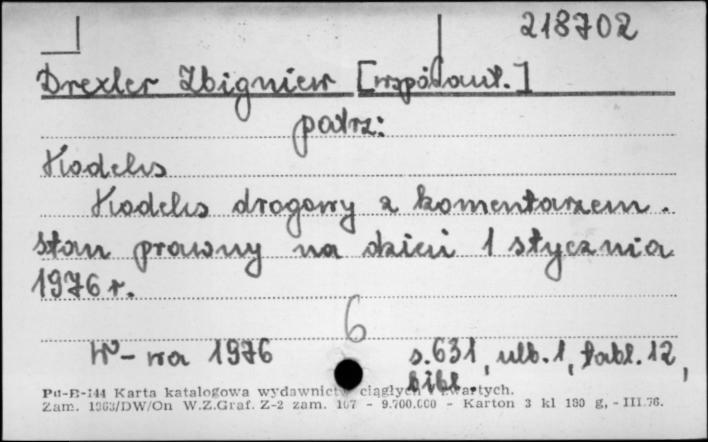 218702
Drexler Zbigniew [współaut.]
patrz:
Kodeks
Kodeks drogowy z komentarzem.
stan prawny na dzień 1 stycznia
1976 r.
6
W-wa 1976 s.631, ulb.1, tabl.12,
bibl.
Pu-B-144 Karta katalogowa wydawnictw ciągłych i zwartych.
Zam. 1363/DW/On W.Z.Graf. Z-2 zam. 107 - 9.700.000 - Karton 3 kl 180 g, - III.76.